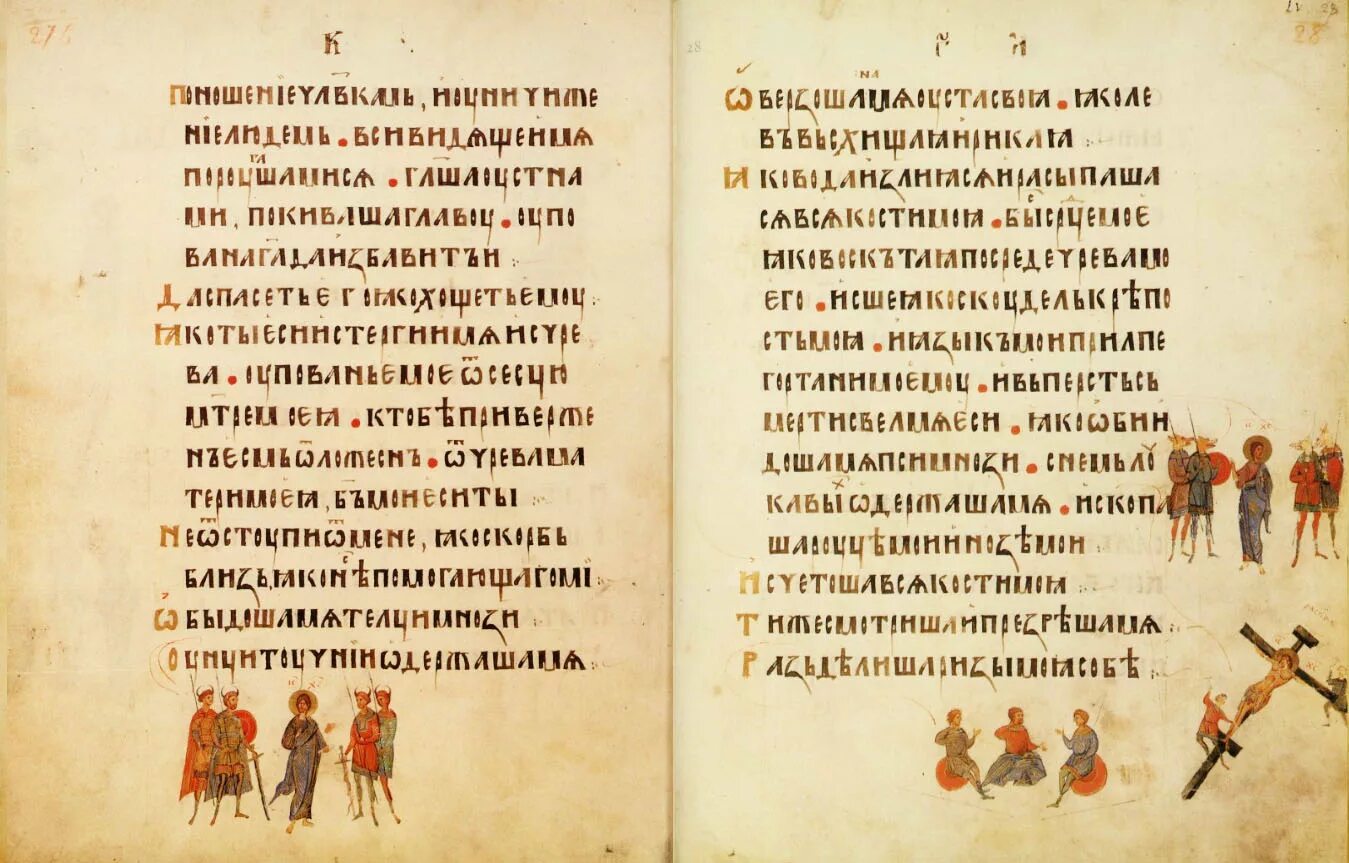 К
поношеніеч҃лвкмь, иоуничиже
ніелюдемь.всивидѧщеимѧ
пороугашамисѧ.гл҃ашаоустна
ми, покивашаглавоу.оупо
ванаг҃адаизбавитъи
даспасетьегоꙗкохощетьемоу
ꙗкотыесиистергиимѧисчре
ва.оупованьемоеѿсесцю
мт҃ремоеꙗ.ктобѣприверже
нъесмьѿложеснъ.ѿчревама
теримоеꙗ,бъ҃моиеситы
неѿстоупиѿмене,ꙗкоскорбь
близь,ꙗконѣ҇помогающагомі
ѡбыдошамѧтелцимнози
оунцитоучніиѡдержашамѧ
28
К И
ѡверзошанамѧоустасвоꙗ.ꙗколе
въвъсхищаꙗирикаꙗ
ꙗководаизлиꙗсѧирасыпаша
сѧвсѧкостимоꙗ.бы҇ср҃цемое
ꙗковоскътаꙗпосредечревамо
его.исшеꙗкоскоудельк
рѣпо
стьмоꙗ.иꙗзыкъмоиприлпе
гортанимоемоу.ивьперстьсь
мертисвелмѧеси.ꙗкоѡбии
дошамѧпсимнози.снемьло
кавыхѡдержашамѧ.ископа
шароуцѣмоиинозѣмои
исчетошавсѧкостимоꙗ
тижесмотришаипрезрѣшамѧ
раздѣлишаризымоꙗсобѣ